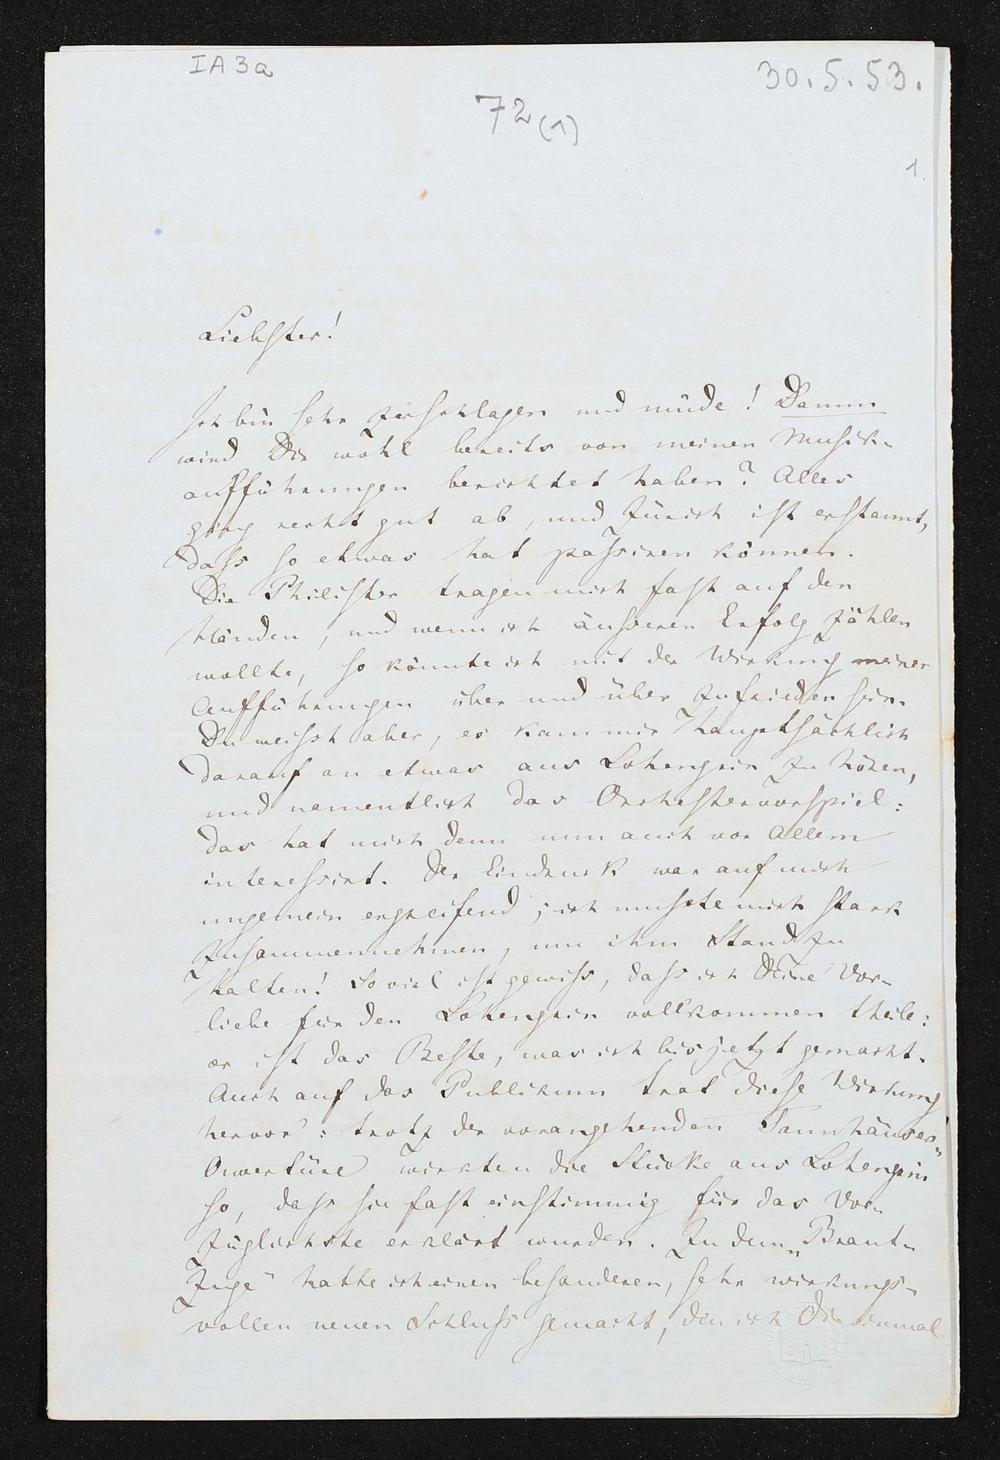 IA3a
30.5.53.
72(1)
1.
Liebster!
Ich bin sehr zerschlagen und müde! Damm
wird Dir wohl bereits von meinen Musik-
aufführungen berichtet haben? Alles
ging recht gut ab, und Zürich ist erstaunt,
dass so etwas hat passiren können.
Die Philister tragen mich fast auf den
Händen, und wenn ich äusseren Erfolg zählen
wollte, so könnte ich mit der Wirkung meiner
Aufführungen über und über zufrieden sein.
Du weisst aber, es kam mir hauptsächlich
darauf an etwas aus Lohengrin zu hören,
und namentlich das Orchestervorspiel:
das hat mich denn nun auch vor Allem
interessirt. Der Eindruck war auf mich
ungemein ergreifend; ich musste mich stark
zusammennehmen, um ihm Stand zu
halten! So viel ist gewiss, dass ich Deine Vor-
liebe für den Lohengrin vollkommen theile:
er ist das Beste, was ich bis jetzt gemacht.
Auch auf das Publikum trat diese Wirkung
hervor: trotz der vorangehenden Tannhäuser"
Ouvertüre wirkten die Stücke aus Lohengrin
so, dass sie fast einstimmig für das Vor-
züglichste erklärt wurden. Zu dem „Braut-
zuge" hatte ich einen besonderen, sehr wirkungs-
vollen neuen Schluss gemacht, den ich Dir einmal